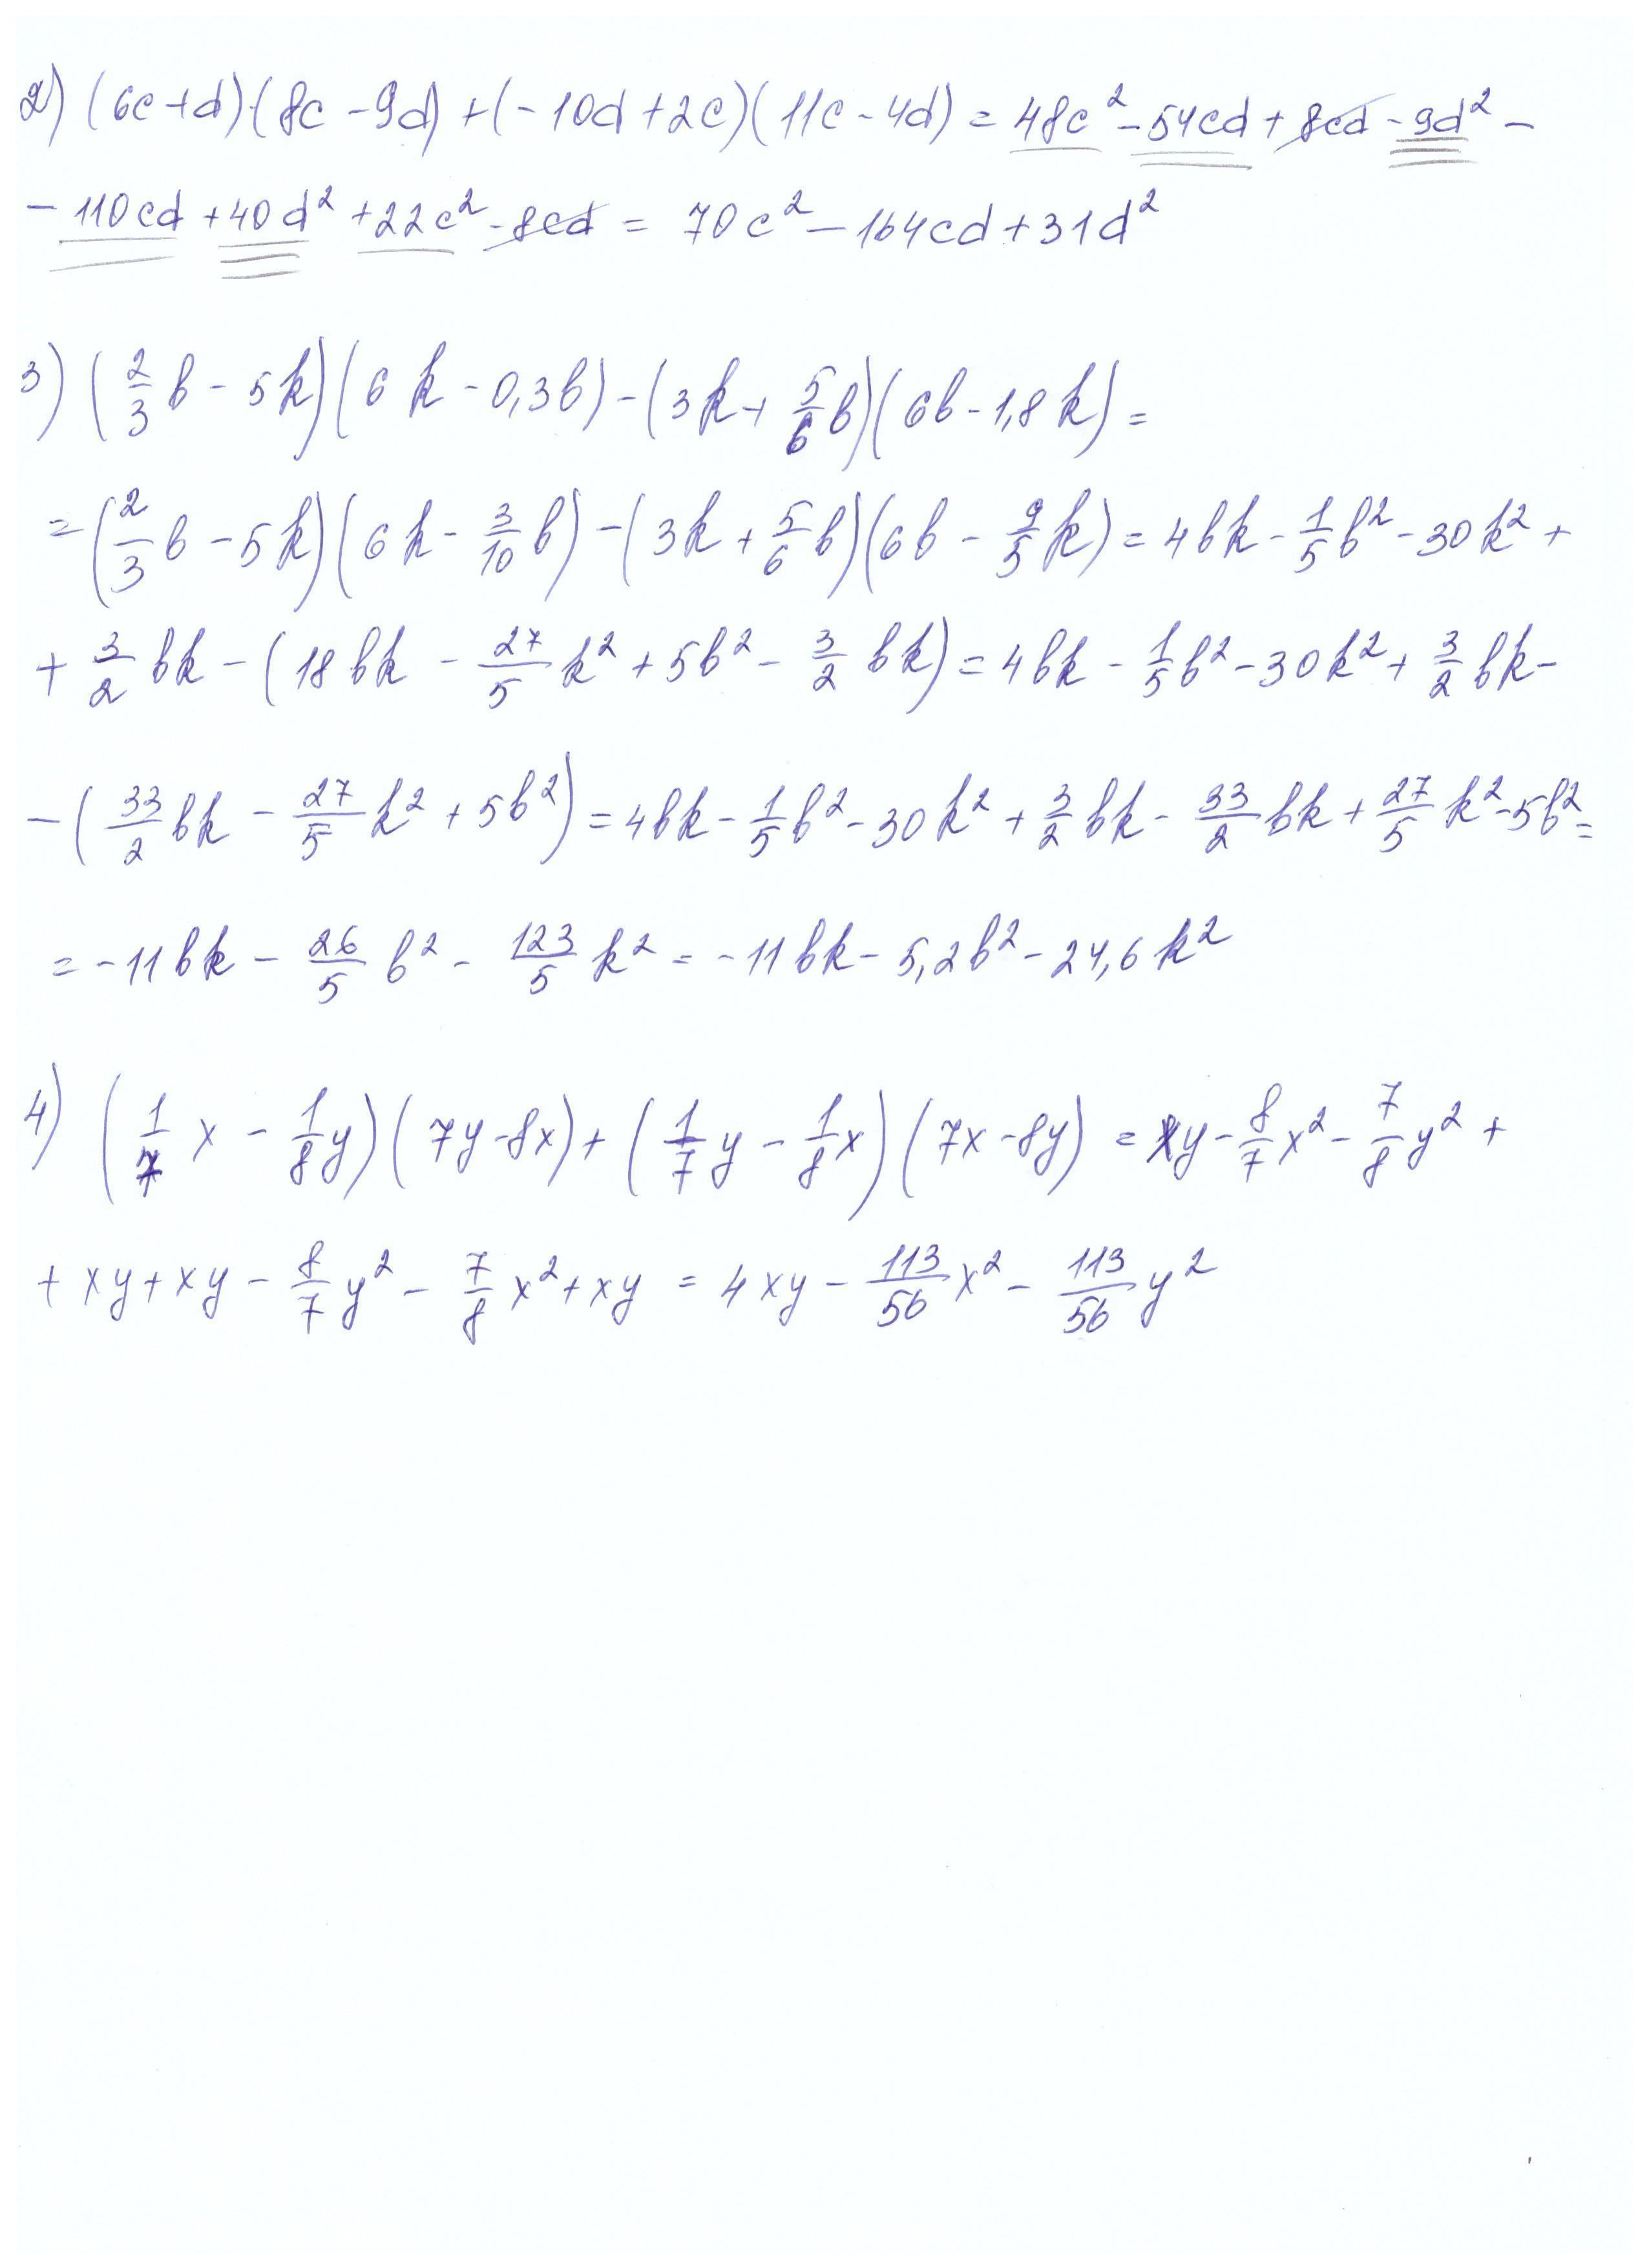 2) (6c+d)·(8c-9d)+(-10d+2c)(11c-4d)=48c²-54cd+8cd-9d²-
-110cd+40d²+22c²-8cd=70c²-164cd+31d²
3) (2/3b-5k)(6k-0,3b)-(3k+5/6b)(6b-1,8k)=
=(2/3b-5k)(6k-3/10b)-(3k+5/6b)(6b-9/5k)=4bk-1/5b²-30k²+
+3/2bk-(18bk-27/5k²+5b²-3/2bk)=4bk-1/5b²-30k²+3/2bk-
-(33/2bk-27/5k²+5b²)=4bk-1/5b²-30k²+3/2bk-33/2bk+27/5k²-5b²=
=-11bk-26/5b²-123/5k²=-11bk-5,2b²-24,6k²
4) (1/7x-1/8y)(7y-8x)+(1/7y-1/8x)(7x-8y)=xy-8/7x²-7/8y²+
+xy+xy-8/7y²-7/8x²+xy=4xy-113/56x²-113/56y²